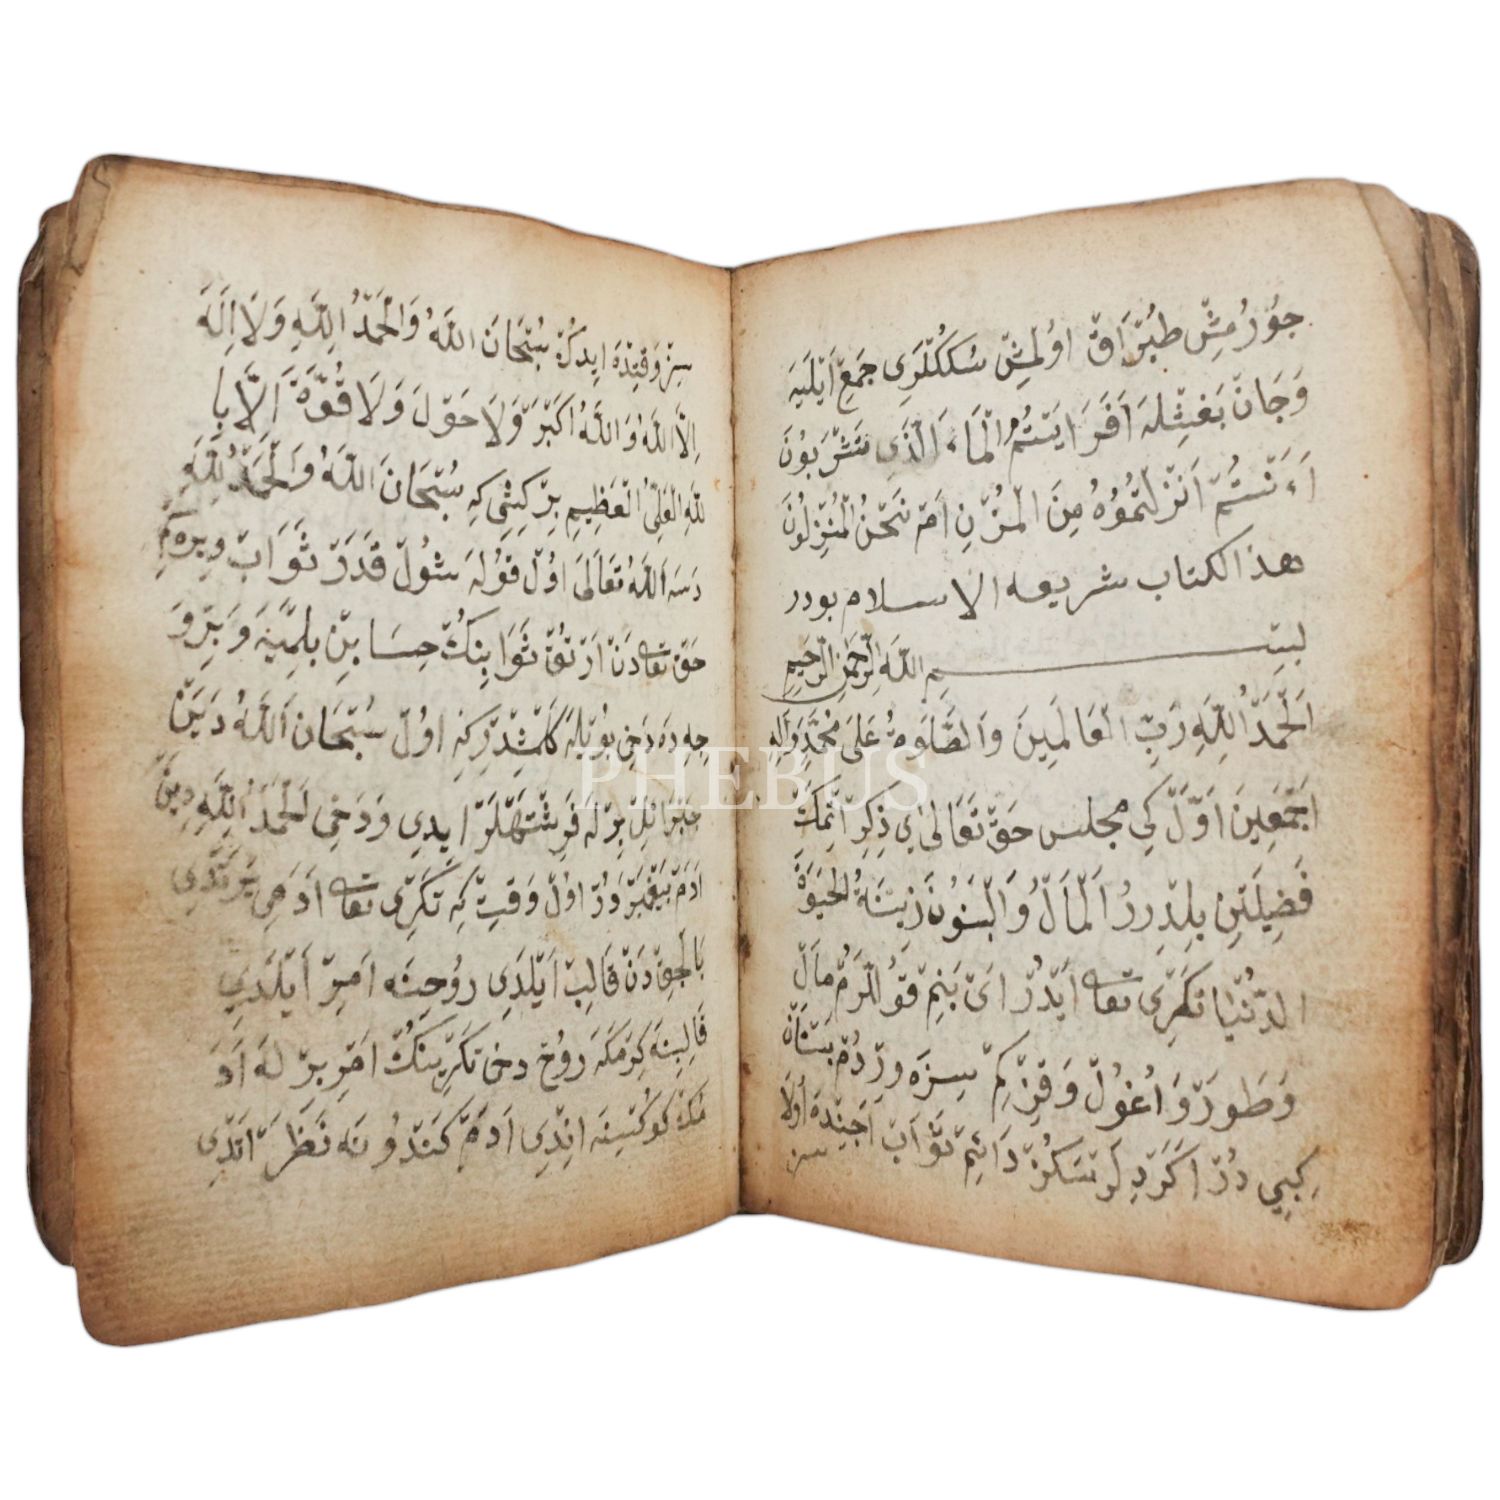 جُوُرُمِشْ طُبْرَاقْ اوُلْمِشْ سُكَكْلَرِى جَمِعْ اَيْلَيَه
وَجَانْ بَغِشْلَه اَفَرَايَتْتُمُ الْمَاءَ الَّذِى تَشْرَبُونَ
اَءَنْتُمْ اَنْزَلْتُمُوُهُ مِنَ الْمُزْنِ اَمْ نَحْنُ الْمُنْزِلُونَ
هذا الكتاب شريعه الاسلام بودر
بِسْــــــمِ اللّٰهِ الرَّحْمٰنِ الرَّحِيمِ
اَلْحَمْدُ لِلّٰهِ رَبِّ الْعَالَمِينَ وَالصَّلَوةُ عَلَى مُحَمَّدٍ وَاٰلِهِ
اَجْمَعِينَ اَوَّلْ كِى مجلس حَقْ تَعَالَى اى ذِكِرْ اِتْمَكْ
فَضِيلَتِنْ بِلْدِرِرُ اَلْمَالُ وَالْبَنُونَ زِينَةُ الْحَيَوةِ
الدُّنْيَا تَكْرِى تعا اَيْدُرْ اَىْ بَنِمْ قوُللَرُمْ مَالْ
وَطَوَرْ وَاُغُولْ وَقِزْ كِمْ سِزَه وِرْدُمْ بُسْتَانْ
كِبِى دُرْ اَكَرْ دِلَرْسَكُزْ دَائِمْ ثَوَابْ اِجِنْدَه اوُلَا
سز
سِزْ وَقِتْدَه اِيدِكُزْ سُبْحَانَ اللّٰهُ وَالْحَمْدُ لِلّٰهِ وَلَا اِلَهَ
اِلَّا اللّٰهُ وَاللّٰهُ اَكْبَرْ وَلَا حَوْلَ وَلَا قُوَّةَ اِلَّا بِا
للّٰهِ الْعَلِىِّ الْعَظِيمِ بِرْ كِشِى كِه سُبْحَانَ اللّٰهُ وَالْحَمْدُ لِلّٰهِ
دَسَه اَللّٰهُ تَعَالَى اوُلْ قوُلَه شوُلْ قَدَرْ ثَوَابْ وِيرَه كِمْ
حَقْ تعادَنْ اَرْتُقْ ثَوَابِنِكْ حِسَابِنْ بِلْمَيَه وَبِرْ وَ
جِه دَه دَخِى بوُيْلَه كَلْمِشْدِرْكِه اوُلْ سُبْحَانَ اَللّٰهُ دَيَنْ
جَبْرَائِلْ بِرْلَه فَرِشْتَهْلَرْ ايدِى وَدَخِى اَلْحَمْدُ لِلّٰهِ دِيَنْ
اٰدَمْ بَيْغَمْبَرْ دُرْ اوُلْ وَقِتْ كِه تَكْرِى تعا اٰدَمِى يَرَتْدِى
بَالْجِقْ دَنْ قَالِبْ اَيْلَدِى روُحِنَه اَمِرْ اَيْلَدِى
قَالِبِنَه كِرْمَكَه روُحْ دخى تَكْرِينِكْ اَمْرِ بِرْلَه اٰدَ
مُكْ كوُكْسِنَه اِنْدِى اٰدَمْ كَنْدوُنَه نَظَرْ اَتْدِى
PHEBUS